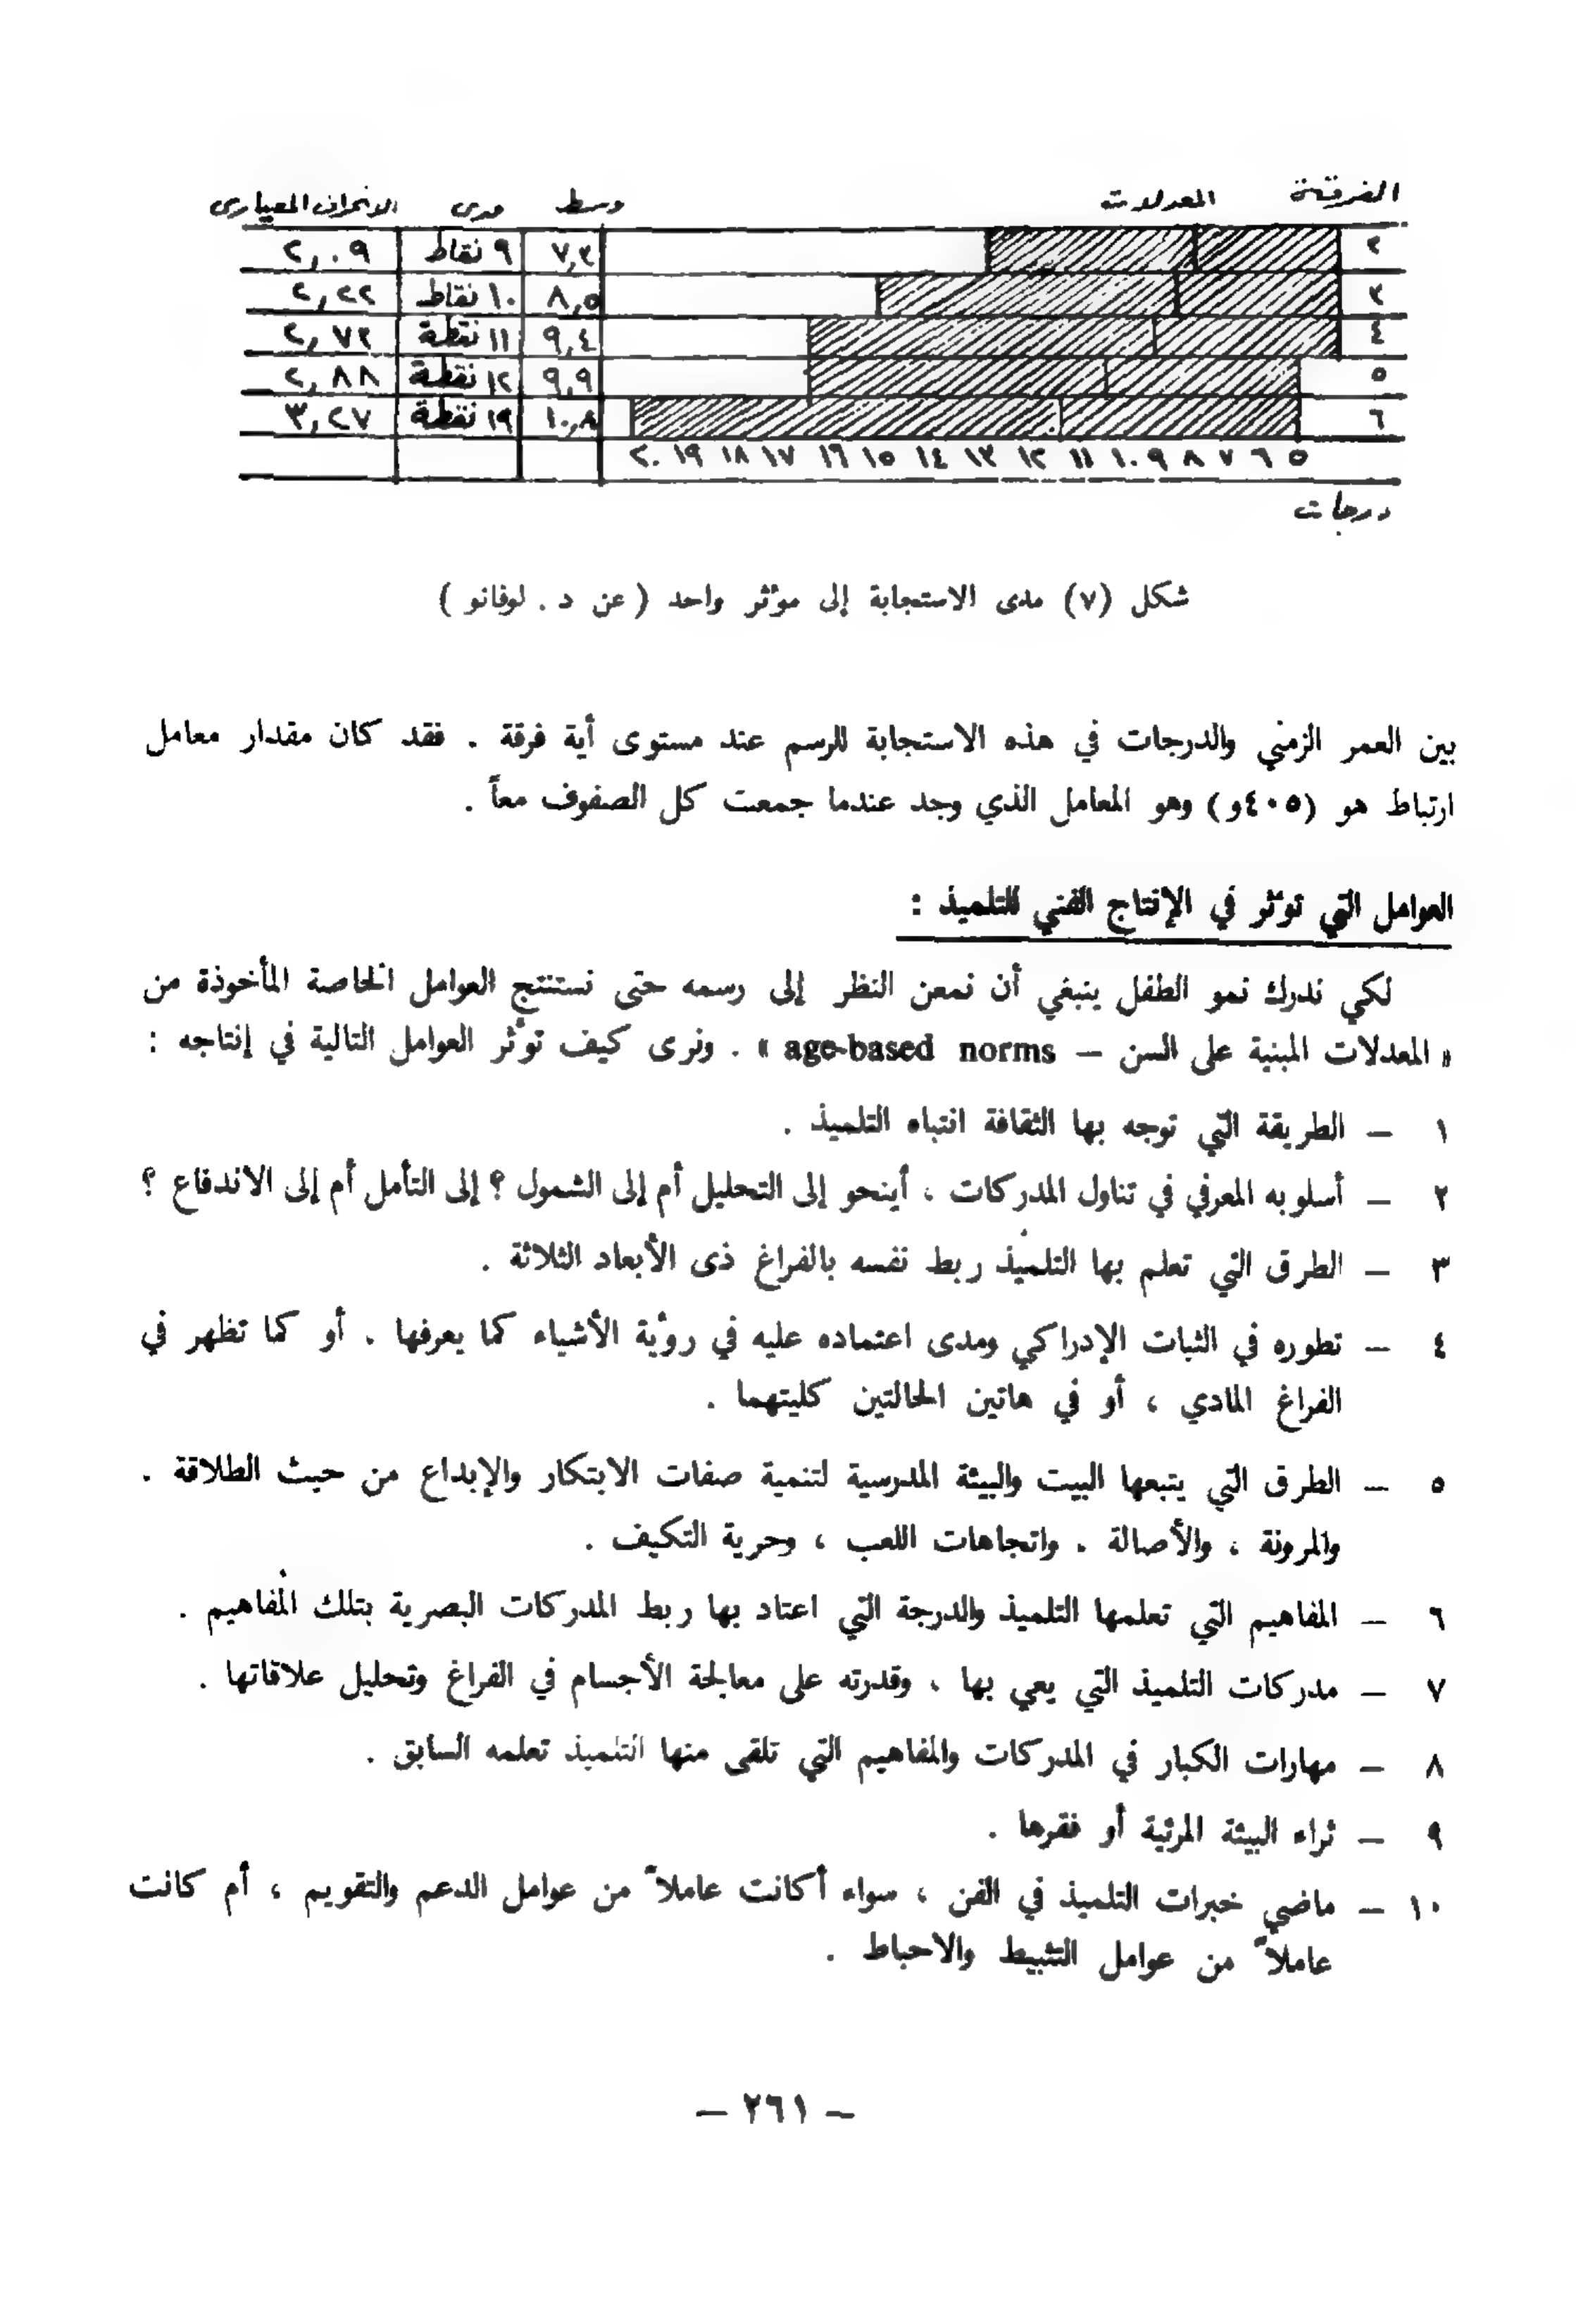 الفرقة المعدلات وسط مدى الانحراف المعيارى
٢ ٧,٢ ٩ نقاط ٢,٠٩
٣ ٨,٥ ١٠ نقاط ٢,٢٢
٤ ٩,٤ ١١ نقطة ٢,٧٢
٥ ٩,٩ ١٢ نقطة ٢,٨٨
٦ ١٠,٨ ١٩ نقطة ٣,٢٧
٥ ٦ ٧ ٨ ٩ ١٠ ١١ ١٢ ١٣ ١٤ ١٥ ١٦ ١٧ ١٨ ١٩ ٢٠
درجات
شكل (٧) مدى الاستجابة إلى مؤثر واحد ( عن د . لوفانو )
بين العمر الزمني والدرجات في هذه الاستجابة للرسم عند مستوى أية فرقة . فقد كان مقدار معامل
ارتباط هو (٤٠٥و) وهو المعامل الذي وجد عندما جمعت كل الصفوف معاً .
العوامل التي تؤثر في الإنتاج الفني للتلميذ :
لكي ندرك نمو الطفل ينبغي أن نمعن النظر إلى رسمه حتى نستنتج العوامل الخاصة المأخوذة من
« المعدلات المبنية على السن – age-based norms » . ونرى كيف تؤثر العوامل التالية في إنتاجه :
١ – الطريقة التي توجه بها الثقافة انتباه التلميذ .
٢ – أسلوبه المعرفي في تناول المدركات ، أينحو إلى التحليل أم إلى الشمول ؟ إلى التأمل أم إلى الاندفاع ؟
٣ – الطرق التي تعلم بها التلميذ ربط نفسه بالفراغ ذى الأبعاد الثلاثة .
٤ – تطوره في الثبات الإدراكي ومدى اعتماده عليه في رؤية الأشياء كما يعرفها ، أو كما تظهر في
الفراغ المادي ، أو في هاتين الحالتين كليتهما .
٥ – الطرق التي يتبعها البيت والبيئة المدرسية لتنمية صفات الابتكار والإبداع من حيث الطلاقة .
والمرونة ، والأصالة . واتجاهات اللعب ، وحرية التكيف .
٦ – المفاهيم التي تعلمها التلميذ والدرجة التي اعتاد بها ربط المدركات البصرية بتلك المفاهيم .
٧ – مدركات التلميذ التي يعي بها ، وقدرته على معالجة الأجسام في الفراغ وتحليل علاقاتها .
٨ – مهارات الكبار في المدركات والمفاهيم التي تلقى منها التلميذ تعلمه السابق .
٩ – ثراء البيئة المرئية أو فقرها .
١٠ – ماضي خبرات التلميذ في الفن ، سواء أكانت عاملاً من عوامل الدعم والتقويم ، أم كانت
عاملاً من عوامل التثبيط والاحباط .
– ٢٦١ –